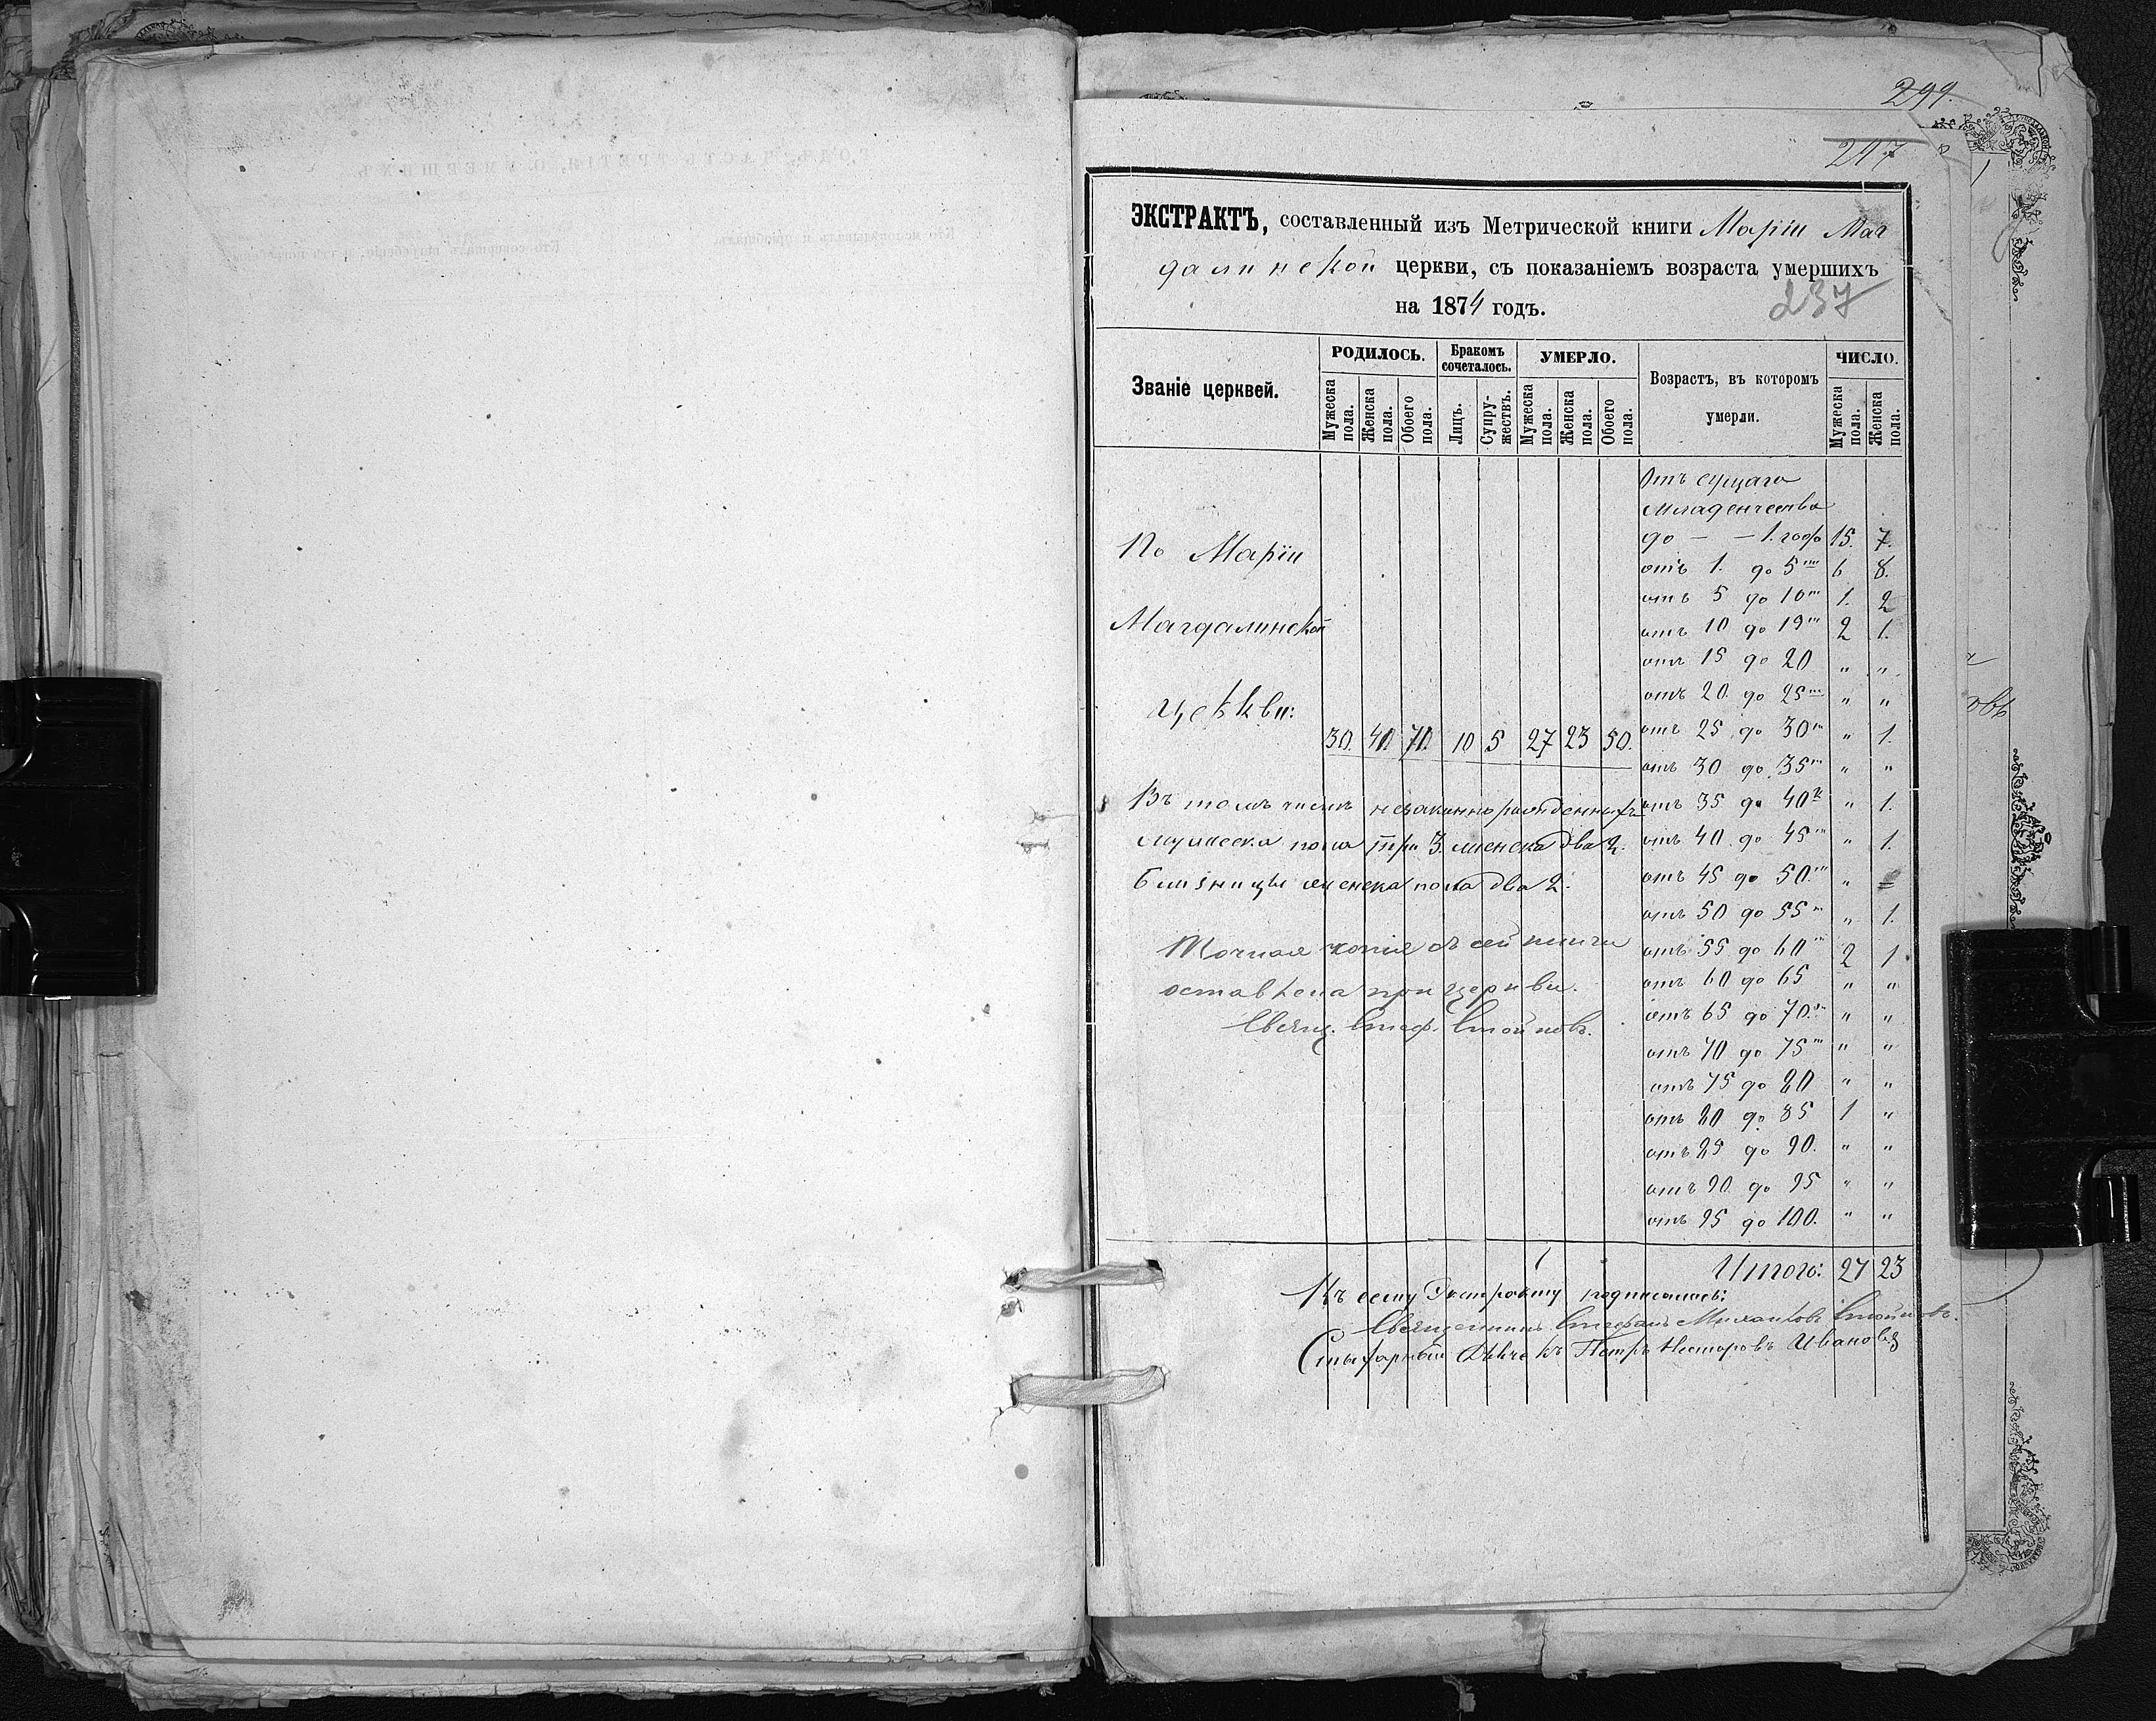 299.
247
ЭКСТРАКТЪ, составленный изъ Метрической книги Маріи Маг
далинской церкви, съ показаніемъ возраста умершихъ
на 1874 годъ.
237
Званіе церквей.
РОДИЛОСЬ.
Бракомъ сочеталось.
УМЕРЛО.
Возрастъ, въ которомъ умерли.
ЧИСЛО.
Мужеска пола.
Женска пола.
Обоего пола.
Лицъ.
Супружествъ.
Мужеска пола.
Женска пола.
Обоего пола.
Мужеска пола.
Женска пола.
По Маріи
Магдалинской
церкви:
30. 40. 70. 10 5 27 23 50.
Въ томъ числѣ незаконнорожденныхъ
мужеска пола три 3. женска два 2.
Близницы женска пола два 2.
Точная копія съ сей книги
оставлена при церкви.
Свящ. Стеф. Стойковъ.
Отъ сущаго
младенчества
до — — 1. года 15. 7.
отъ 1. до 5 ти 6 8.
отъ 5 до 10 ти 1. 2
отъ 10 до 15 ти 2 1.
отъ 15 до 20 " "
отъ 20. до 25 ти " "
отъ 25 до 30 ти " 1.
отъ 30 до 35 ти " "
отъ 35 до 40 " 1.
отъ 40. до 45 ти " 1.
отъ 45 до 50. ти " =
отъ 50 до 55 ти " 1.
отъ 55 до 60 ти 2 1
отъ 60 до 65 " "
отъ 65 до 70. ти " "
отъ 70 до 75 ти " "
отъ 75 до 80 " "
отъ 80 до 85 1 "
отъ 85 до 90. " "
отъ 90 до 95 " "
отъ 95 до 100. " "
Итого: 27 23
Къ сему Экстракту подписались:
Священникъ Стефанъ Михайловъ Стойковъ.
Стихарный Дьячекъ Петръ Несторовъ Ивановъ